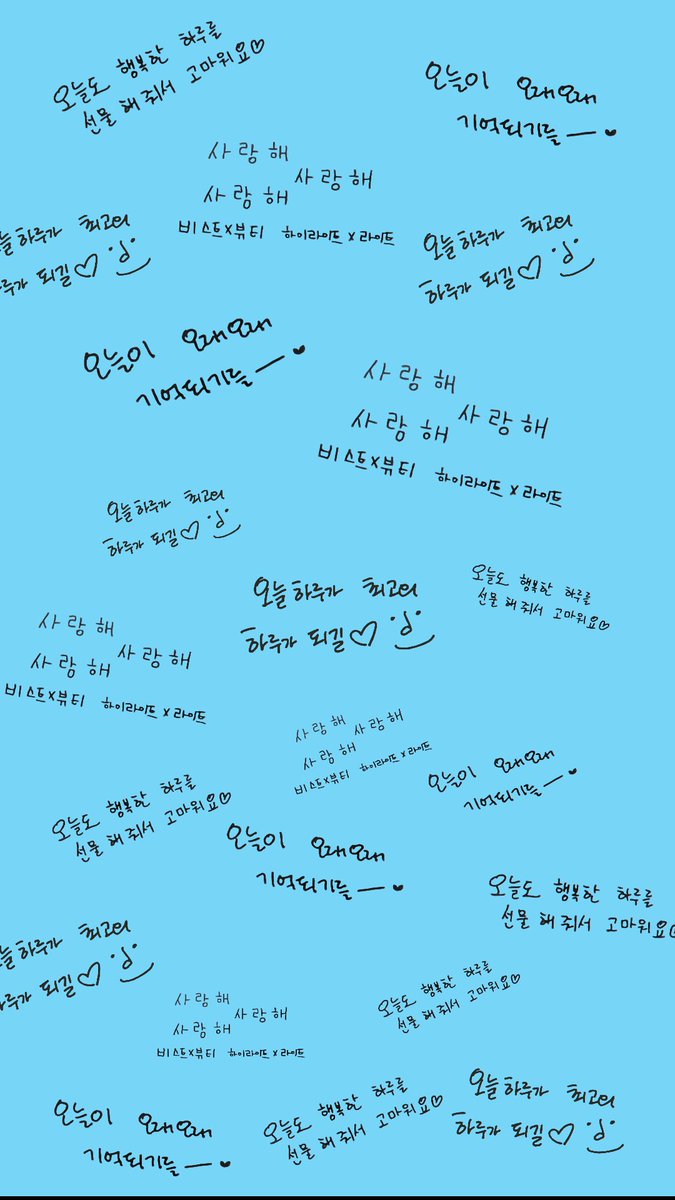 오늘도 행복한 하루를
선물 해 줘서 고마워요♡
오늘이 오래오래
기억되기를 — ♥
사랑해
사랑해
사랑해
비스트x뷰티 하이라이트 x 라이트
오늘하루가 최고의
하루가 되길♡
오늘하루가 최고의
하루가 되길♡
오늘이 오래오래
기억되기를 — ♥
사랑해
사랑해
사랑해
비스트x뷰티 하이라이트 x 라이트
오늘하루가 최고의
하루가 되길♡
오늘하루가 최고의
하루가 되길♡
오늘도 행복한 하루를
선물 해 줘서 고마워요♡
사랑해
사랑해
사랑해
비스트x뷰티 하이라이트 x 라이트
사랑해
사랑해
사랑해
비스트x뷰티 하이라이트 x 라이트
오늘이 오래오래
기억되기를 — ♥
오늘도 행복한 하루를
선물 해 줘서 고마워요♡
오늘이 오래오래
기억되기를 — ♥
오늘도 행복한 하루를
선물 해 줘서 고마워요♡
오늘하루가 최고의
하루가 되길♡
오늘도 행복한 하루를
선물 해 줘서 고마워요♡
사랑해
사랑해
사랑해
비스트x뷰티 하이라이트 x 라이트
오늘이 오래오래
기억되기를 — ♥
오늘도 행복한 하루를
선물 해 줘서 고마워요♡
오늘하루가 최고의
하루가 되길♡